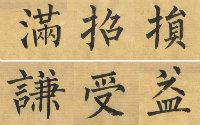 滿招損
謙受益